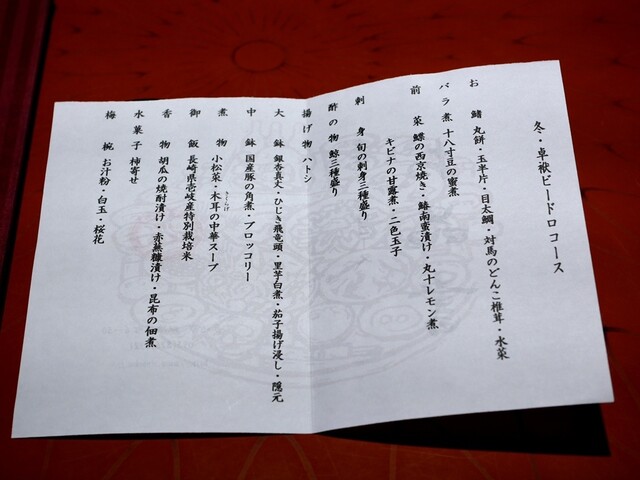 冬・卓袱ビードロコース
お鰭 丸餅・玉半片・目太鯛・対馬のどんこ椎茸・水菜
バラ煮 十八寸豆の蜜煮
前菜 鰈の西京焼き・鰆南蛮漬け・丸十レモン煮
キビナの甘露煮・二色玉子
刺身 旬の刺身三種盛り
酢の物 鯨三種盛り
揚げ物 ハトシ
大鉢 銀杏真丈・ひじき飛竜頭・里芋白煮・茄子揚げ浸し・隠元
中鉢 国産豚の角煮・ブロッコリー
煮物 小松菜・木耳の中華スープ
きくらげ
御飯 長崎県壱岐産特別栽培米
香物 胡瓜の焼酎漬け・赤蕪糠漬け・昆布の佃煮
水菓子 柿寄せ
梅椀 お汁粉・白玉・桜花